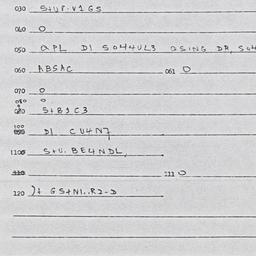 030 S+UP.V1 GS
040 O
050 QPL DI SO44UL3 QSING DR, SU4
060 ABSAC 061 O
070 O
080 O
090 S+B1C3
100 DI CU4N7
110 S+U. BE4NDL,
111 O
120 )+ GS+N1..R2-D